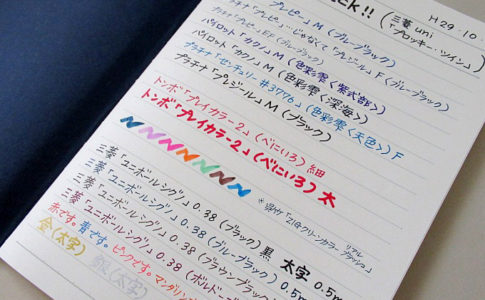 ck!! (三菱 uni H29.10.
「プロッキー・ツイン」)
プレピー」M (ブルーブラック)
プラチナ「プレピー」じゃなくて「プレジール」F (ブルーブラック)
パイロット「カクノ」M (色彩雫〈紫式部〉)
パイロット「カクノ」M (色彩雫〈深海〉)
プラチナ「センチュリー #3776」(色彩雫〈天色〉) F
プラチナ「プレジール」M (ブラック)
トンボ「プレイカラー2」(べにいろ) 細
トンボ「プレイカラー2」(べにいろ) 太
*呉竹「ZIGクリーンカラーリアルブラッシュ」
三菱「ユニボールシグノ」0.38 (ブラック) 黒 太字 0.5m
三菱「ユニボールシグノ」0.38 (ブルーブラック)
三菱「ユニボールシグノ」0.38 (ブラウンブラック)
三菱「ユニボールシグノ」0.38 (ボルドー
赤です。青です。ピンクです。マンダリン
金(太字) 銀(太字)